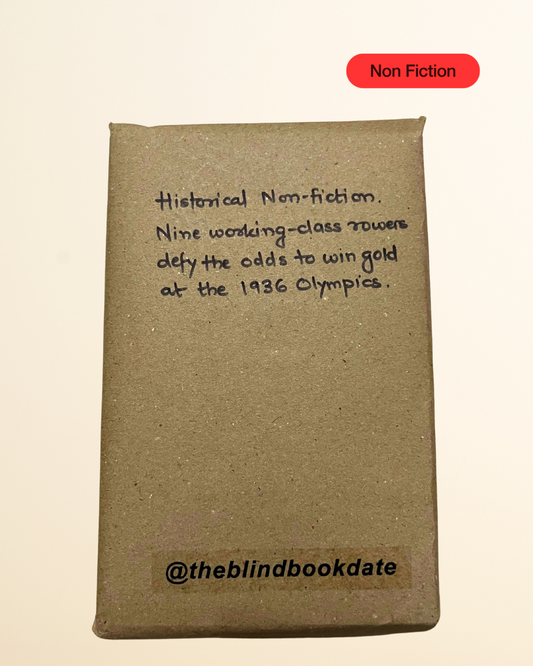 Non Fiction
Historical Non-fiction.
Nine working-class rowers
defy the odds to win gold
at the 1936 Olympics.
@theblindbookdate